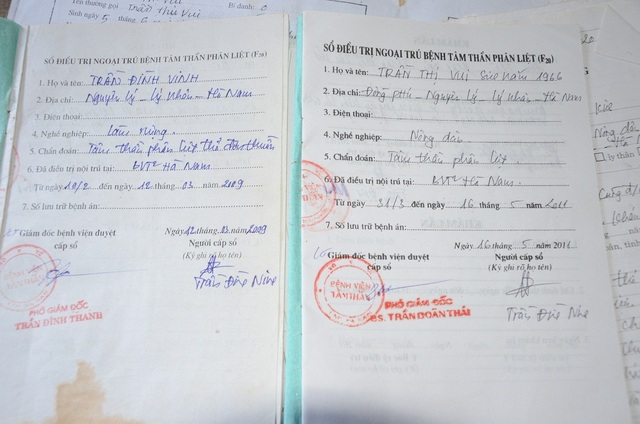 Tên thường gọi
Trần Thị Vui
Bí danh: 0
Sinh ngày 5 tháng 6
SỔ ĐIỀU TRỊ NGOẠI TRÚ BỆNH TÂM THẦN PHÂN LIỆT (F20)
1. Họ và tên: TRẦN ĐÌNH VINH
2. Địa chỉ: Nguyên Lý - Lý Nhân - Hà Nam
3. Điện thoại:
4. Nghề nghiệp: Làm ruộng
5. Chẩn đoán: Tâm thần phân liệt thể đơn thuần
6. Đã điều trị nội trú tại: BVTT Hà Nam
Từ ngày 10/2 đến ngày 12 tháng 03 năm 2009
7. Số lưu trữ bệnh án:
Ngày 12 tháng 03 năm 2009
Giám đốc bệnh viện duyệt
Người cấp sổ
cấp sổ
(Ký ghi rõ họ tên)
BỆNH VIỆN
TÂM THẦN
PHÓ GIÁM ĐỐC
TRẦN ĐÌNH THANH
SỔ ĐIỀU TRỊ NGOẠI TRÚ BỆNH TÂM THẦN PHÂN LIỆT (F20)
1. Họ và tên: TRẦN THỊ VUI Sinh năm 1966
2. Địa chỉ: Đồng Phú - Nguyên Lý - Lý Nhân - Hà Nam
3. Điện thoại:
4. Nghề nghiệp: Nông dân
5. Chẩn đoán: Tâm thần phân liệt
6. Đã điều trị nội trú tại: BVTT Hà Nam
Từ ngày 31/3 đến ngày 16 tháng 5 năm 2011
7. Số lưu trữ bệnh án:
Ngày 16 tháng 5 năm 2011
Giám đốc bệnh viện duyệt
Người cấp sổ
cấp sổ
(Ký ghi rõ họ tên)
BỆNH VIỆN
TÂM THẦN
PHÓ GIÁM ĐỐC
BS. TRẦN ĐOÀN THÁI
Nông dân